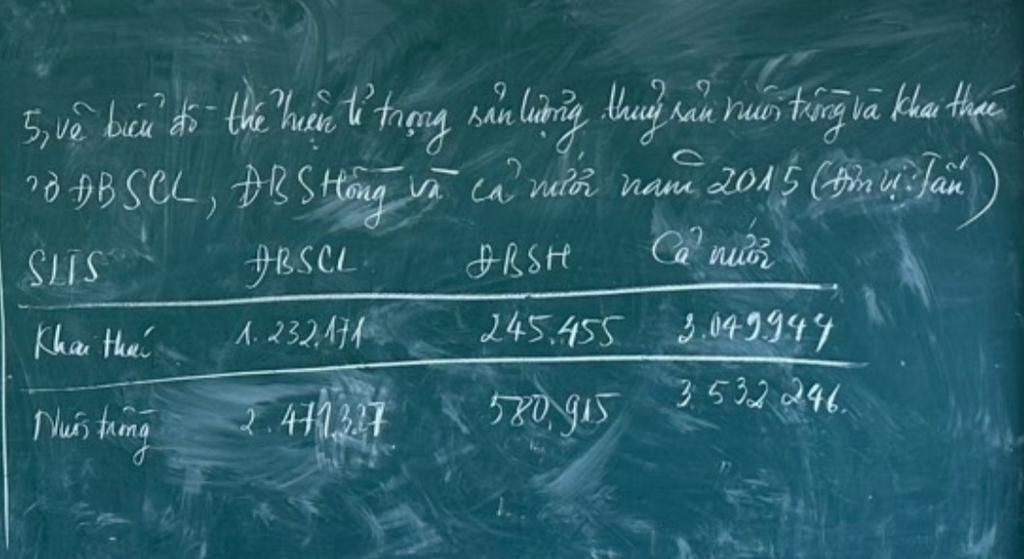 5, vẽ biểu đồ thể hiện tỉ trọng sản lượng thuỷ sản nuôi trồng và khai thác
ở ĐBSCL, ĐBSHồng và cả nước năm 2015 (Đơn vị: Tấn)
SLTS ĐBSCL ĐBSH Cả nước
Khai thác 1.232.171 245.455 3.049.944
Nuôi trồng 580.915 3.532 246.